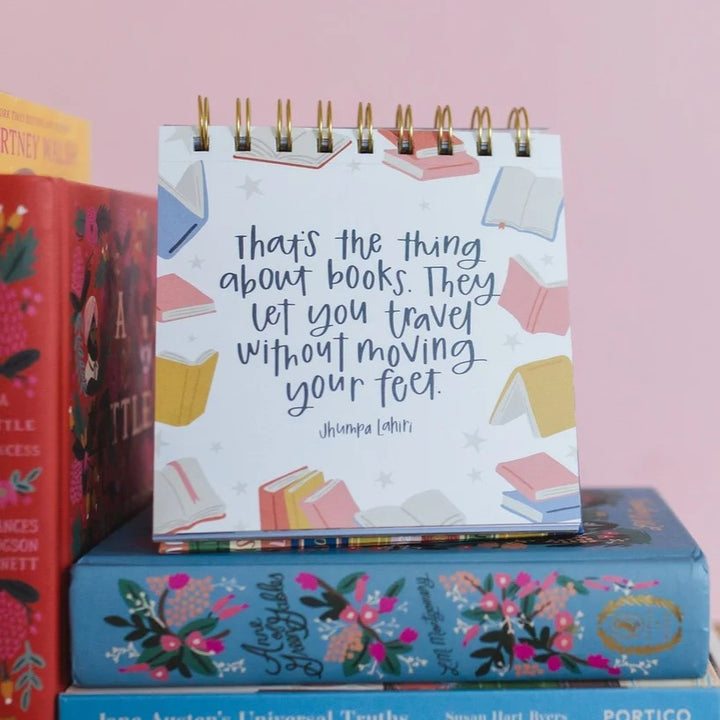 RTNEY WAL
That's the thing
about books. They
let you travel
without moving
your feet.
Jhumpa Lahiri
A
LITTLE
A
LITTLE
PRINCESS
FRANCES
HODGSON
BURNETT
Anne of
Green Gables
L.M. Montgomery
Jane Austen's Universal Truths
Susan Hart Byers
PORTICO